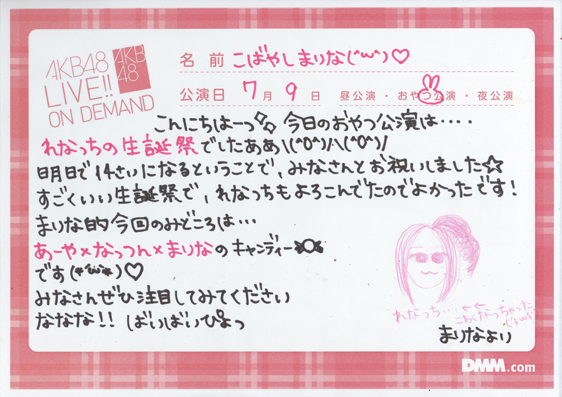 AKB48
LIVE!!
ON DEMAND
AKB
48
名前 こばやしまりな(^ω^)♡
公演日 7月9日 昼公演・おやつ公演・夜公演
こんにちはーっ 今日のおやつ公演は・・・・
れなっちの生誕祭でしたああ\(^o^)/\(^o^)/
明日で14さいになるということで、みなさんとお祝いしました☆
すごくいい生誕祭で、れなっちもよろこんでたのでよかったです!
まりな的今回のみどころは…
あーや×なっつん×まりなのキャンディー
です(*´ω`*)♡
みなさんぜひ注目してみてください
ななな!! ばいばいぴよっ
れなっち…
こわくなっちゃった
まりなより
DMM.com